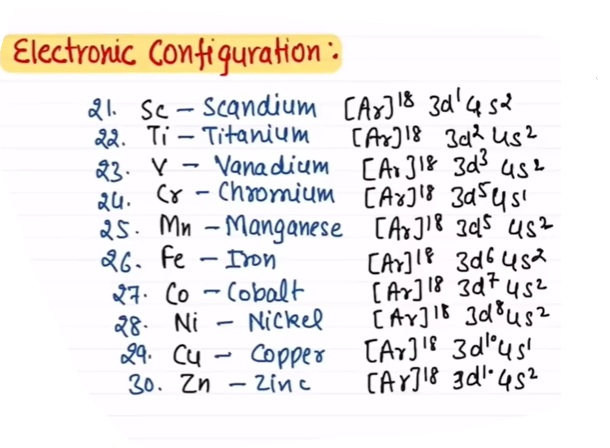 Electronic Configuration:
21. Sc – Scandium [Ar]18 3d1 4s2
22. Ti – Titanium [Ar]18 3d2 4s2
23. V – Vanadium [Ar]18 3d3 4s2
24. Cr – Chromium [Ar]18 3d5 4s1
25. Mn – Manganese [Ar]18 3d5 4s2
26. Fe – Iron [Ar]18 3d6 4s2
27. Co – Cobalt [Ar]18 3d7 4s2
28. Ni – Nickel [Ar]18 3d8 4s2
29. Cu – Copper [Ar]18 3d10 4s1
30. Zn – Zinc [Ar]18 3d10 4s2